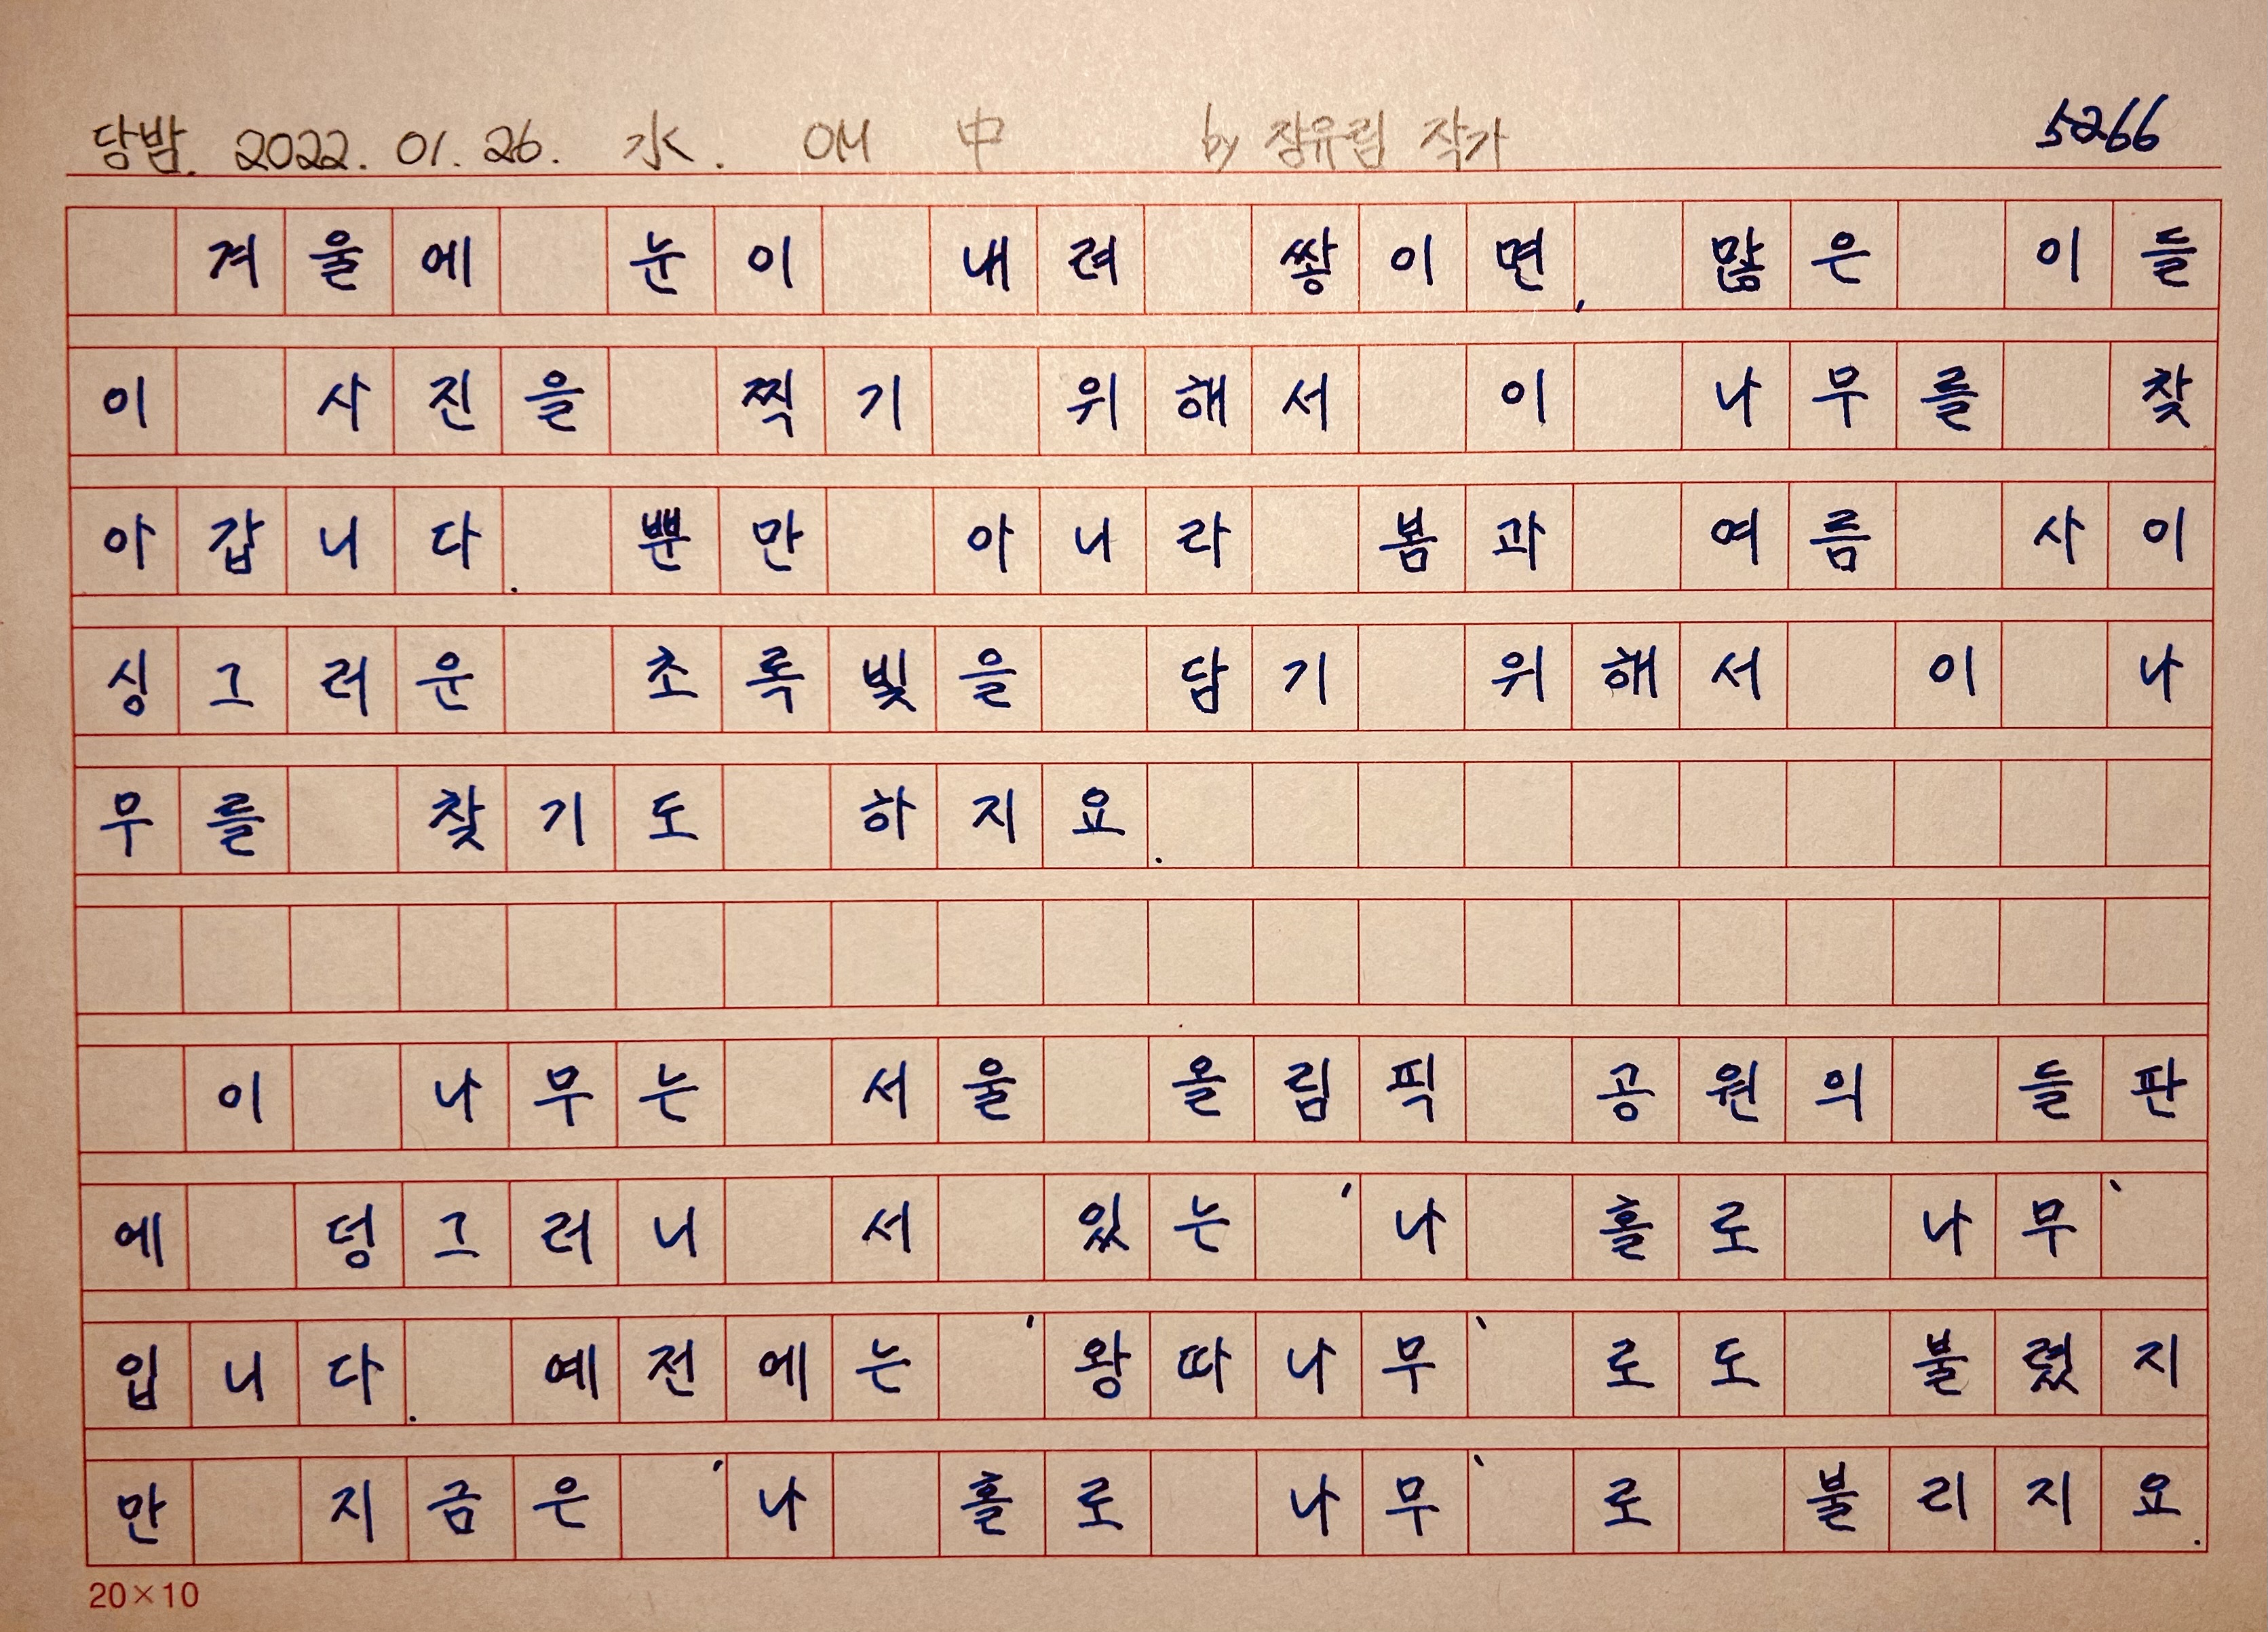 당밤. 2022. 01. 26. 水. 에세이 中 by 장유림 작가 5266
겨울에 눈이 내려 쌓이면, 많은 이들
이 사진을 찍기 위해서 이 나무를 찾
아갑니다. 뿐만 아니라 봄과 여름 사이
싱그러운 초록빛을 담기 위해서 이 나
무를 찾기도 하지요.
이 나무는 서울 올림픽 공원의 들판
에 덩그러니 서 있는 '나 홀로 나무'
입니다. 예전에는 '왕따나무'로도 불렸지
만 지금은 '나 홀로 나무'로 불리지요.
20×10